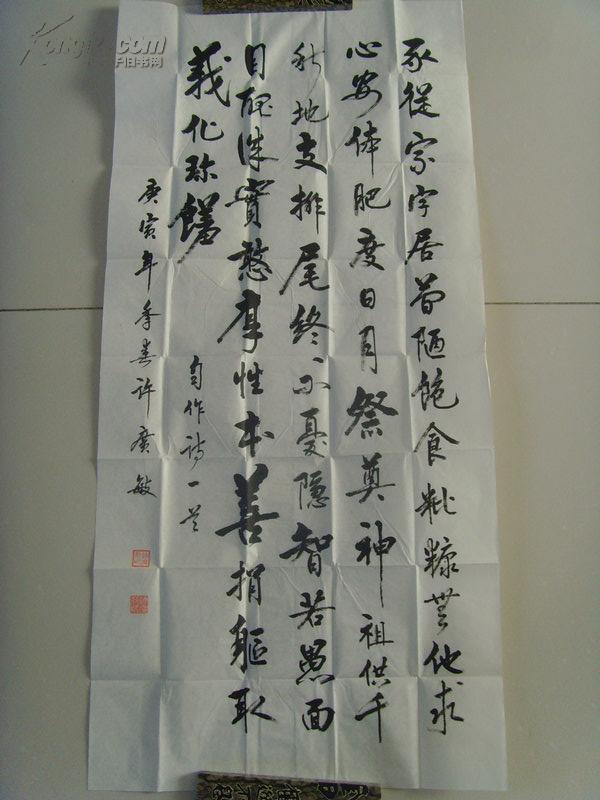 豕從家字居簡陋飽食粃糠無他求
心安体肥度日月祭奠神祖供千
秋地支排尾終不憂隱智若愚面
目醜誠實憨厚性本善捐軀取
義化珍饈
自作詩一首
庚寅年季春許廣敏
Kongfz.com
孔夫子旧书网